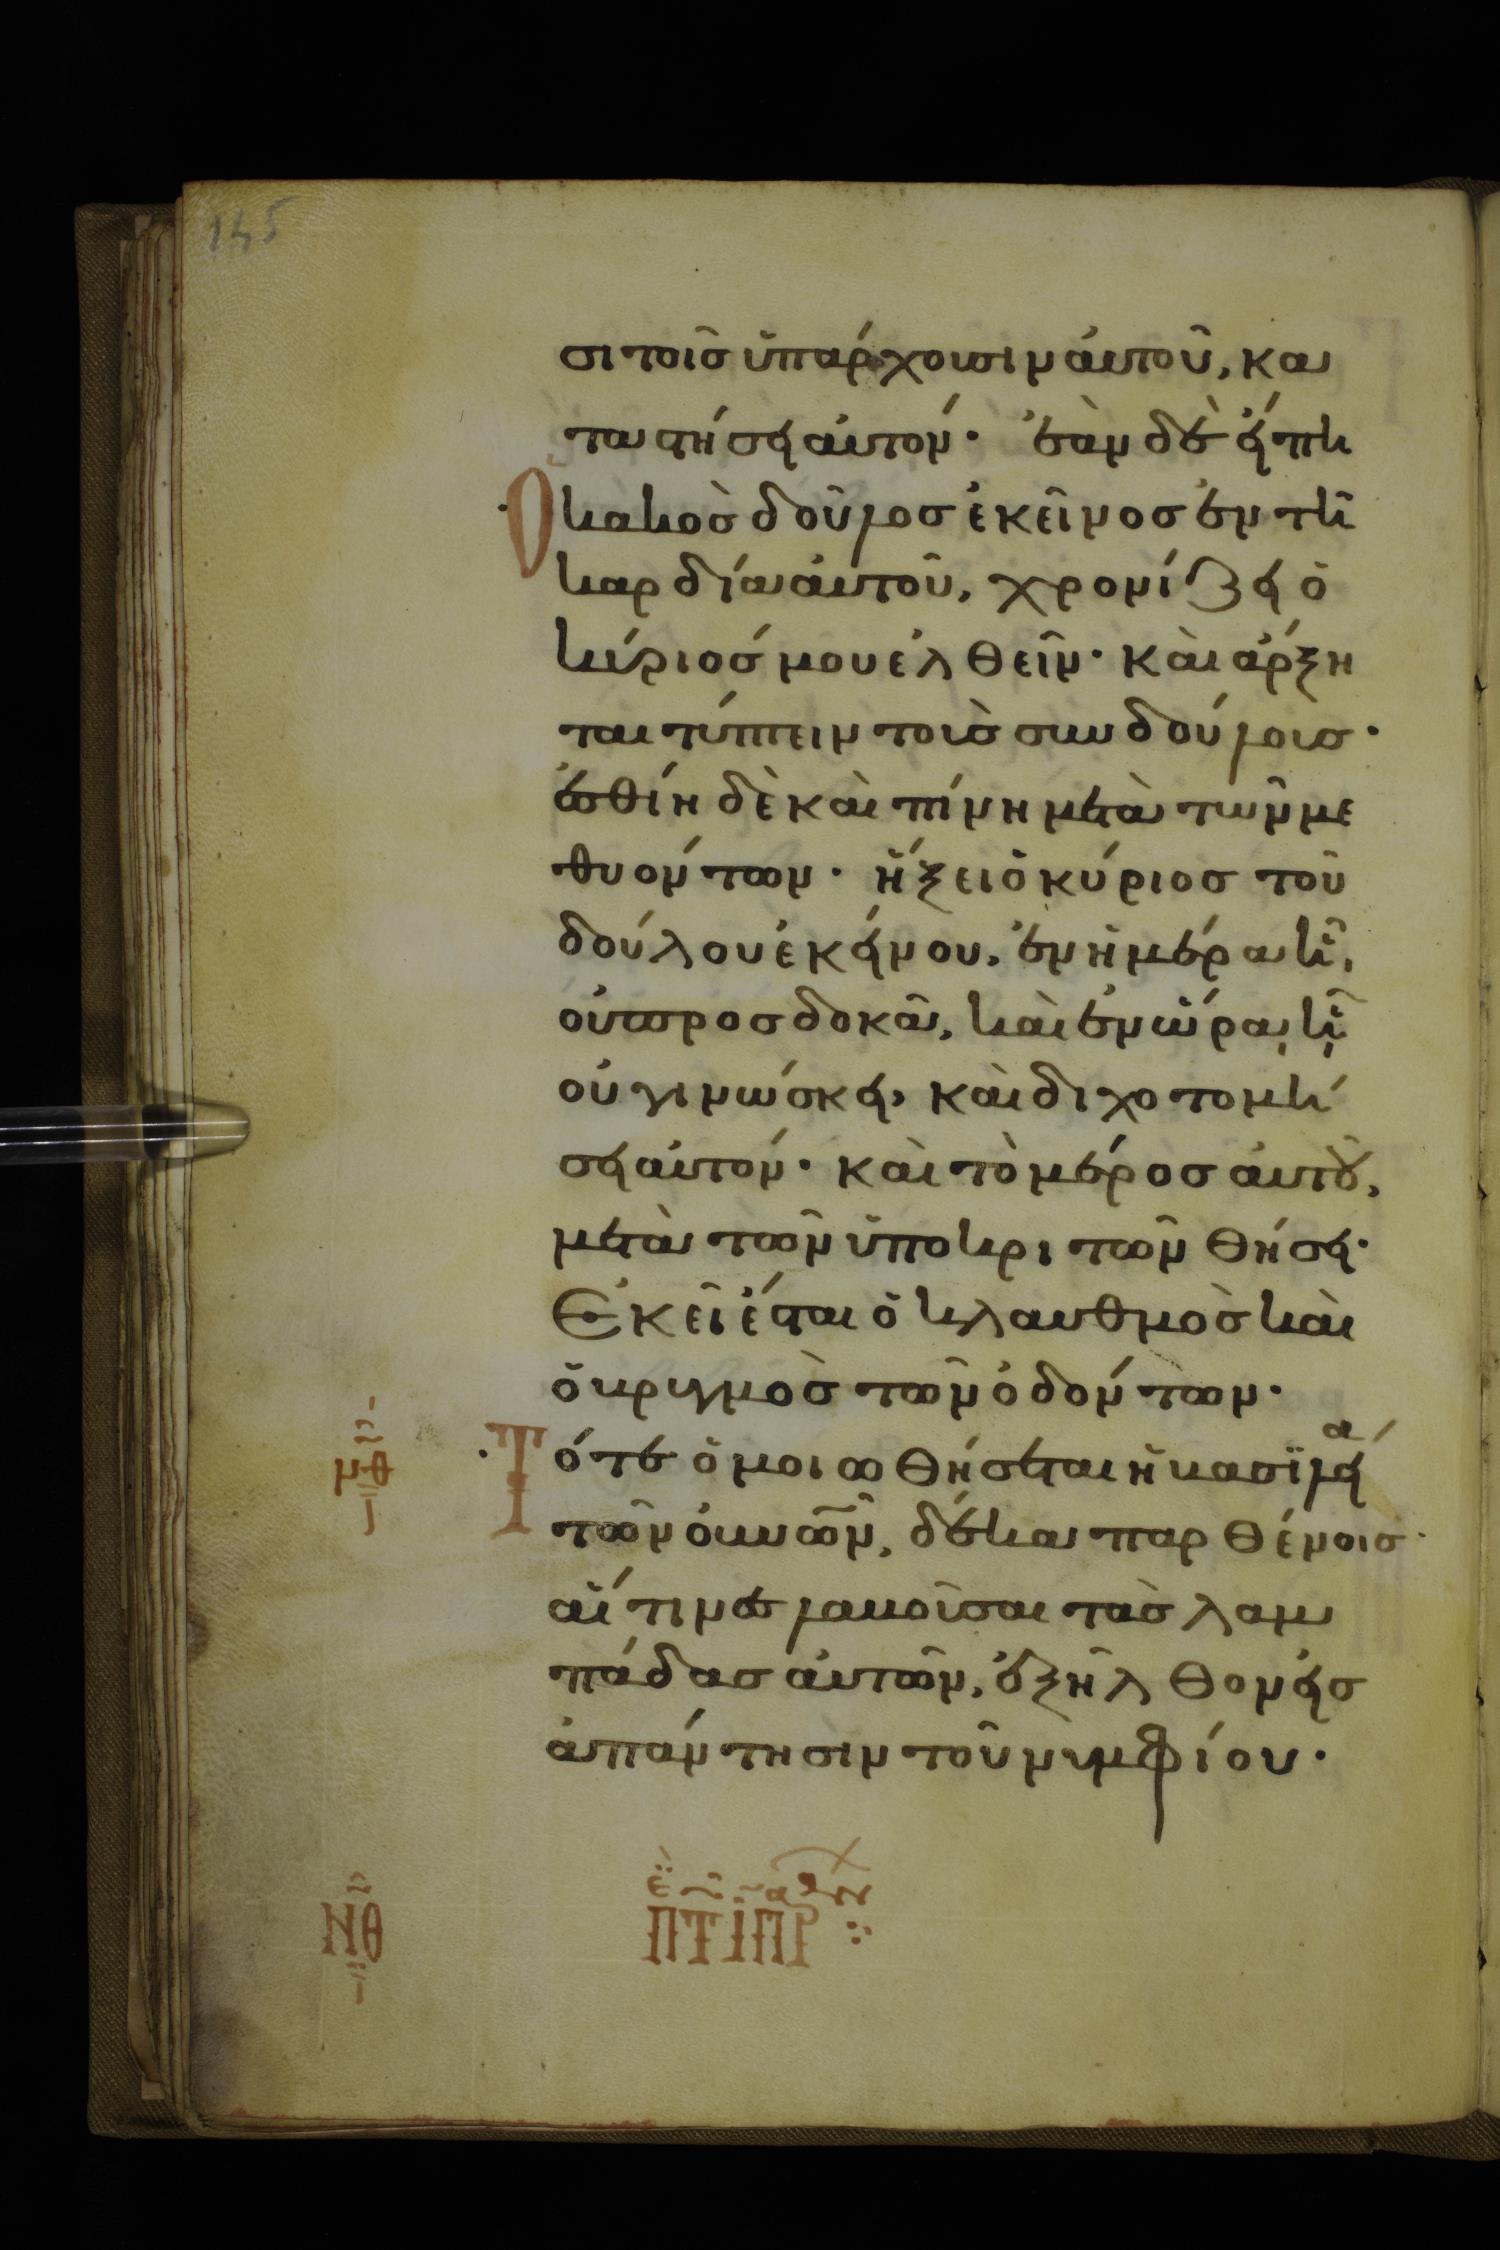 145
σι τοῖς ὑπάρχουσιν αὐτοῦ, κα
ταστήσει αὐτόν· ἐὰν δὲ εἴπη
Ὁ κακὸς δοῦλος ἐκεῖνος ἐν τῆ
καρδία αὐτοῦ, χρονίζει ὁ
κύριός μου ἐλθεῖν· καὶ ἄρξη
ται τύπτειν τοὺς συνδούλους·
ἐσθίη δὲ καὶ πίνη μετὰ τῶν με
θυόντων· ἥξει ὁ κύριος τοῦ
δούλου ἐκείνου, ἐν ἡμέρα ἧ,
οὐ προσδοκᾶ, καὶ ἐν ὥρα, ἧ
οὐ γινώσκει, καὶ διχοτομή
σει αὐτόν· καὶ τὸ μέρος αὐτοῦ,
μετὰ τῶν ὑποκριτῶν θήσει·
Ἐκεῖ ἔσται ὁ κλαυθμὸς καὶ
ὁ βρυγμὸς τῶν ὀδόντων·
Τότε ὁμοιωθήσεται ἡ βασιλεία
τῶν οὐνῶν, δέκα παρθένοις·
αἵτινες λαβοῦσαι τὰς λαμ
πάδας αὐτῶν, ἐξῆλθον εἰς
ἀπάντησιν τοῦ νυμφίου·
ΝΘ